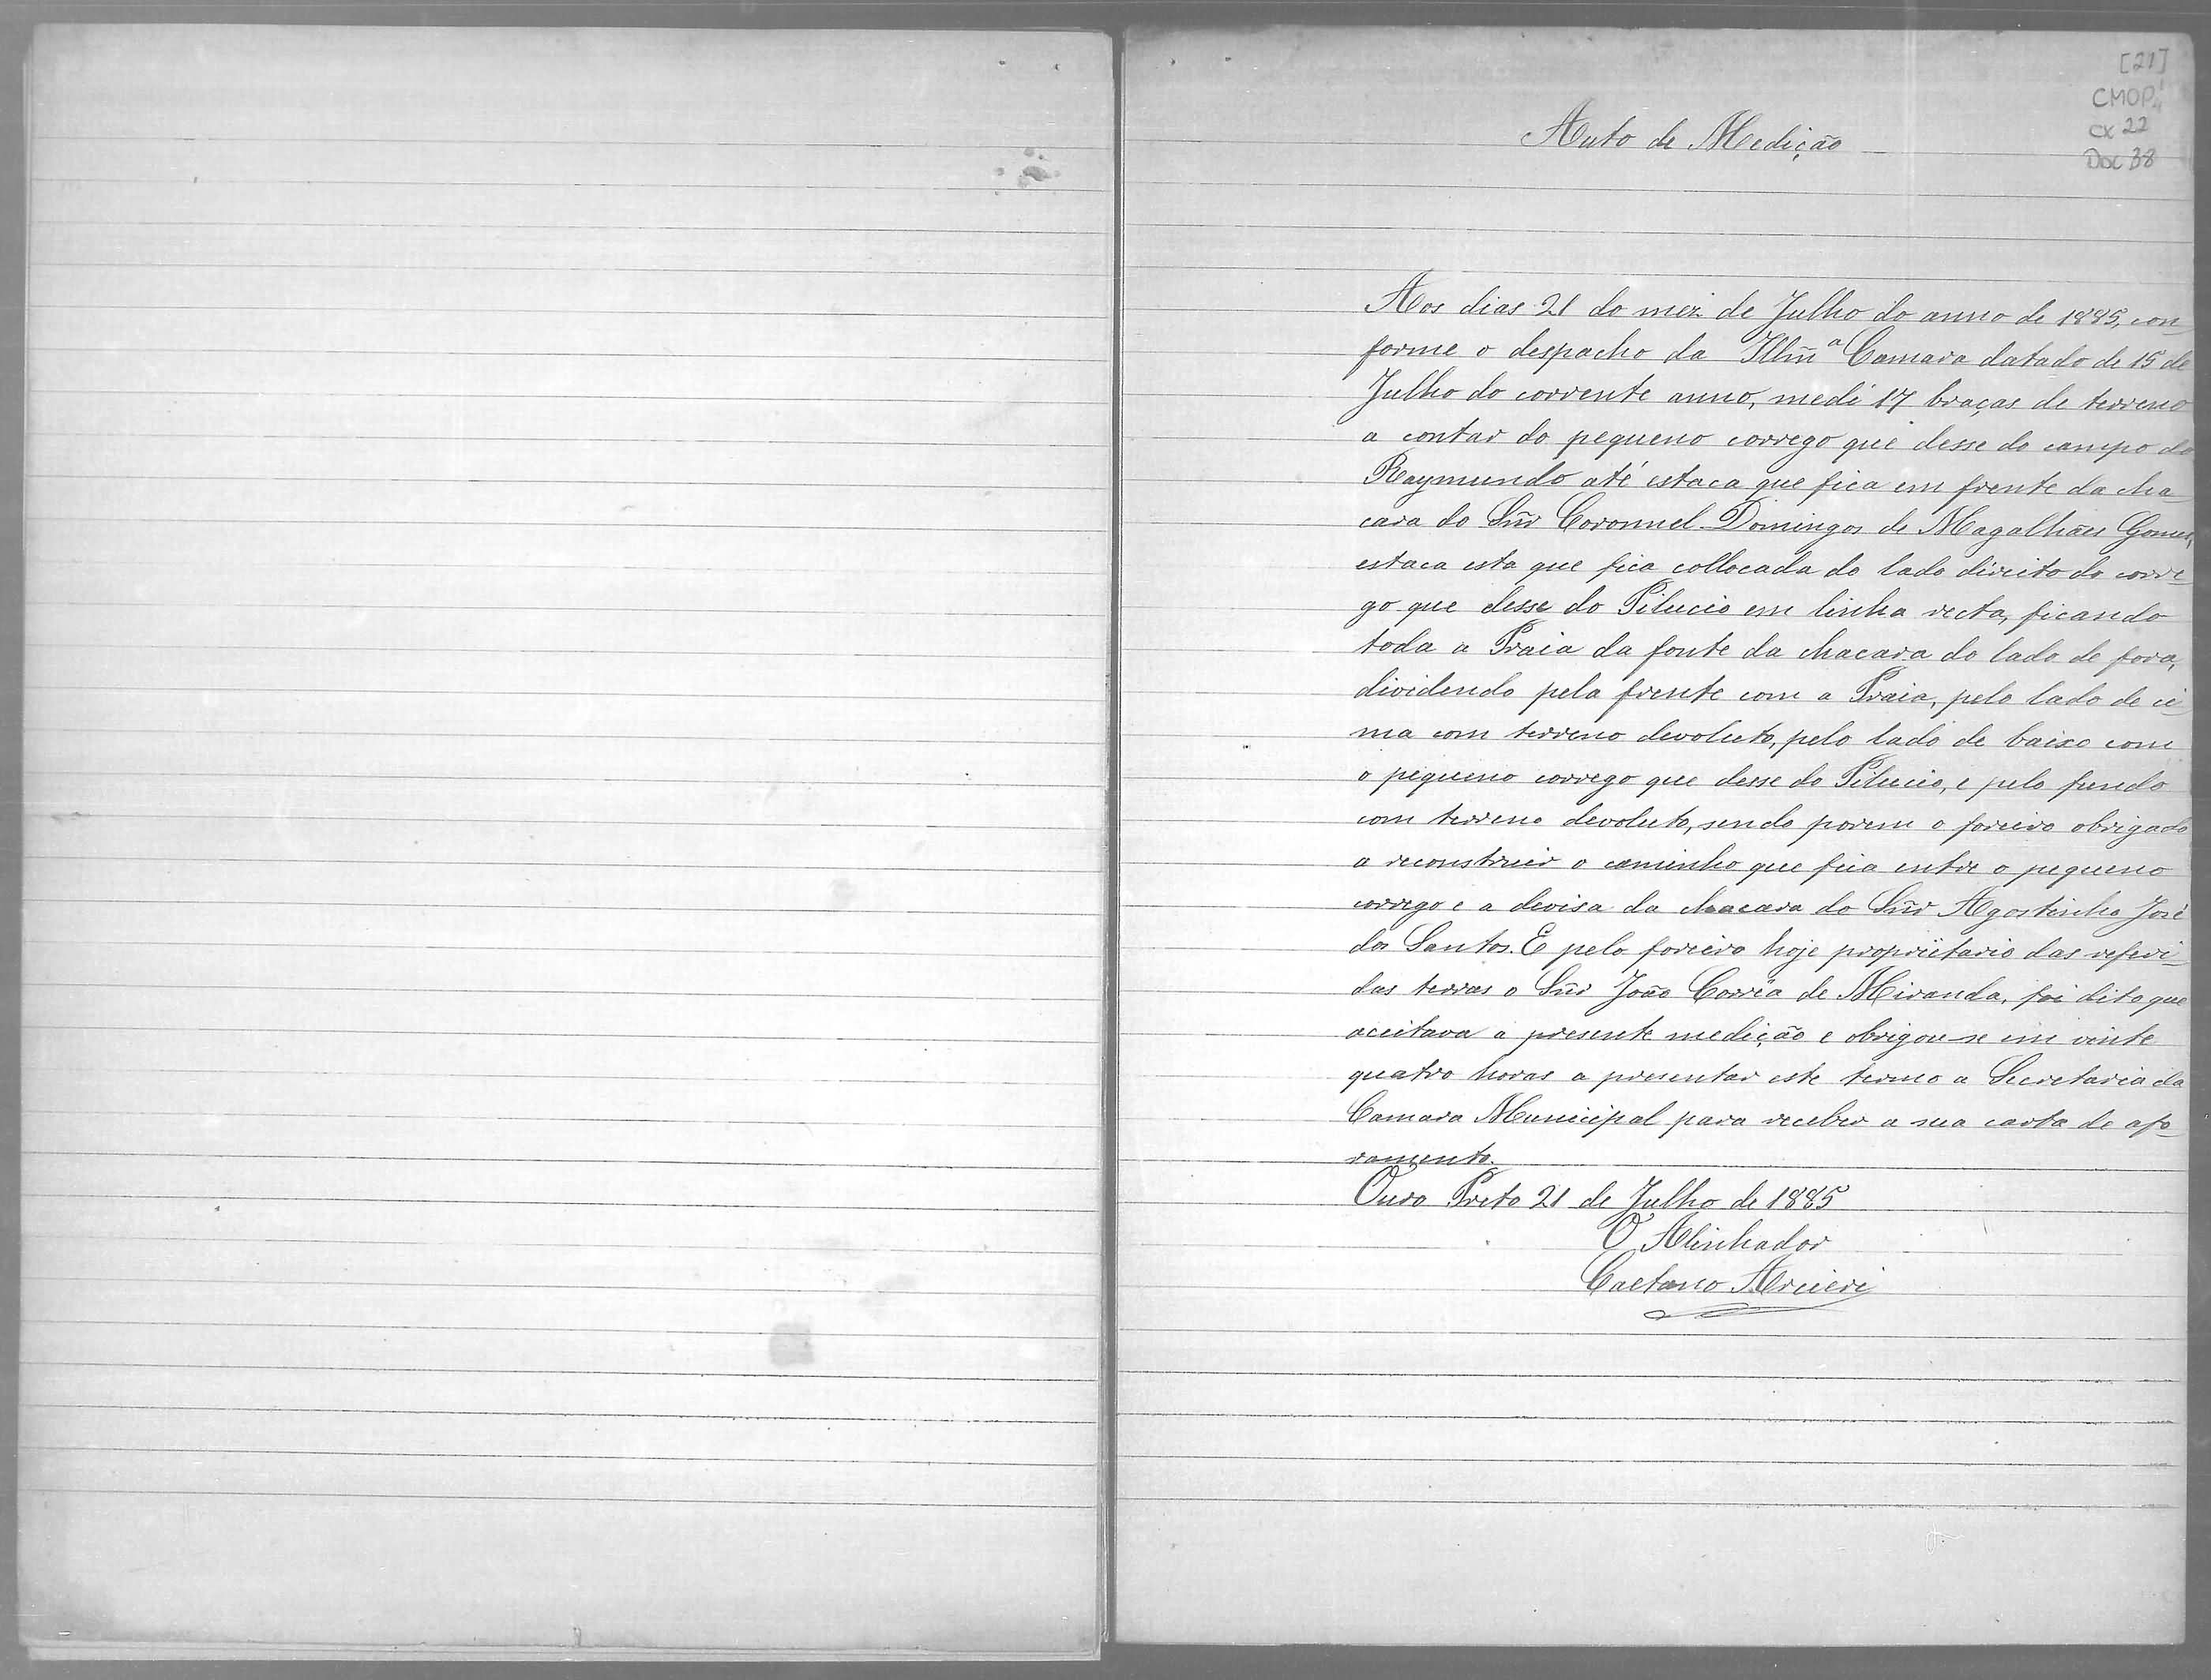 [21]
CMOP
CX 22
Doc 38
Auto de Medição
Aos dias 21 do mez de Julho do anno de 1885, con-
forme o despacho da Illm̃ª Camara datado de 15 de
Julho do corrente anno, medi 17 braças de terreno
a contar do pequeno corrego que desse do campo do
Raymundo até estaca que fica em frente da cha-
cara do Sñr Coronnel Domingos de Magalhães Gomes,
estaca esta que fica collocada do lado direito do corre-
go que desse do Pilucio em linha recta, ficando
toda a Praia da fonte da chacara do lado de fora,
dividendo pela frente com a Praia, pelo lado de ci-
ma com terreno devoluto, pelo lado de baixo com
o pequeno corrego que desse do Pilucio, e pelo fundo
com terreno devoluto, sendo porem o foreiro obrigado
a reconstruir o caminho que fica entre o pequeno
corrego e a devisa da chacara do Sñr Agostinho José
dos Santos. E pelo foreiro hoje proprietario das referi-
das terras o Sñr João Corrêa de Miranda, foi dito que
aceitava a presente medição e obrigou-se em vinte
quatro horas a presentar este termo a Secretaria da
Camara Municipal para receber a sua carta de afo-
ramento.
Ouro Preto 21 de Julho de 1885
O Alinhador
Caetano Arcieri